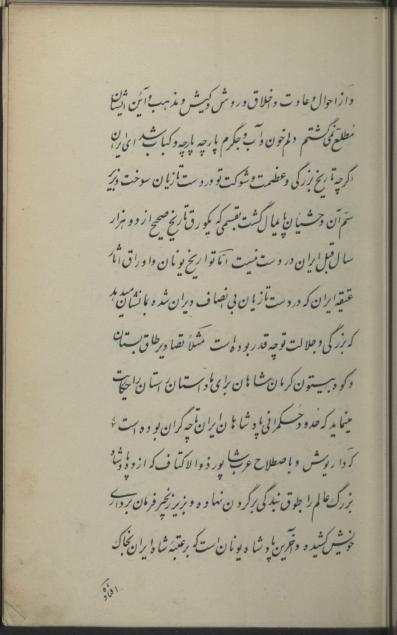 و از احوال و عادت و اخلاق و روش و کیش و مذهب و آئین ایشان
مطلع نمی گشتم دلم خون و آب و جگرم پارچه پارچه و کباب شد ای ایران
اگرچه تاریخ بزرگی و عظمت و شوکت تو در دست تازیان سوخت و زیر
سم آن وحشیان پامیال گشت بقسمی که یکورق تاریخ صحیح از دو هزار
سال قبل ایران در دست نیست اما تواریخ یونان و اوراق آثار
عتیقه ایران که در دست تازیان بی انصاف ویران شده بما نشان میدهد
که بزرگی و جلالت تو چه قدر بوده است مثلا تصاویر طاق بستان
و کوه بیستون کرمان شاهان برای ما داستان باستان را حکایت
مینماید که حدود حکمرانی پادشاهان ایران تا چه گران بوده است
که داریوش و باصطلاح عرب شاپور ذوالاکتاف که از دو پادشاه
بزرگ عالم را طوق بندگی برگردن نهاده و بزیر زنجیر فرمان برداری
خویش کشیده و آخرین پادشاه یونان است که بر عتبه شاه ایران بخاک
افتاده